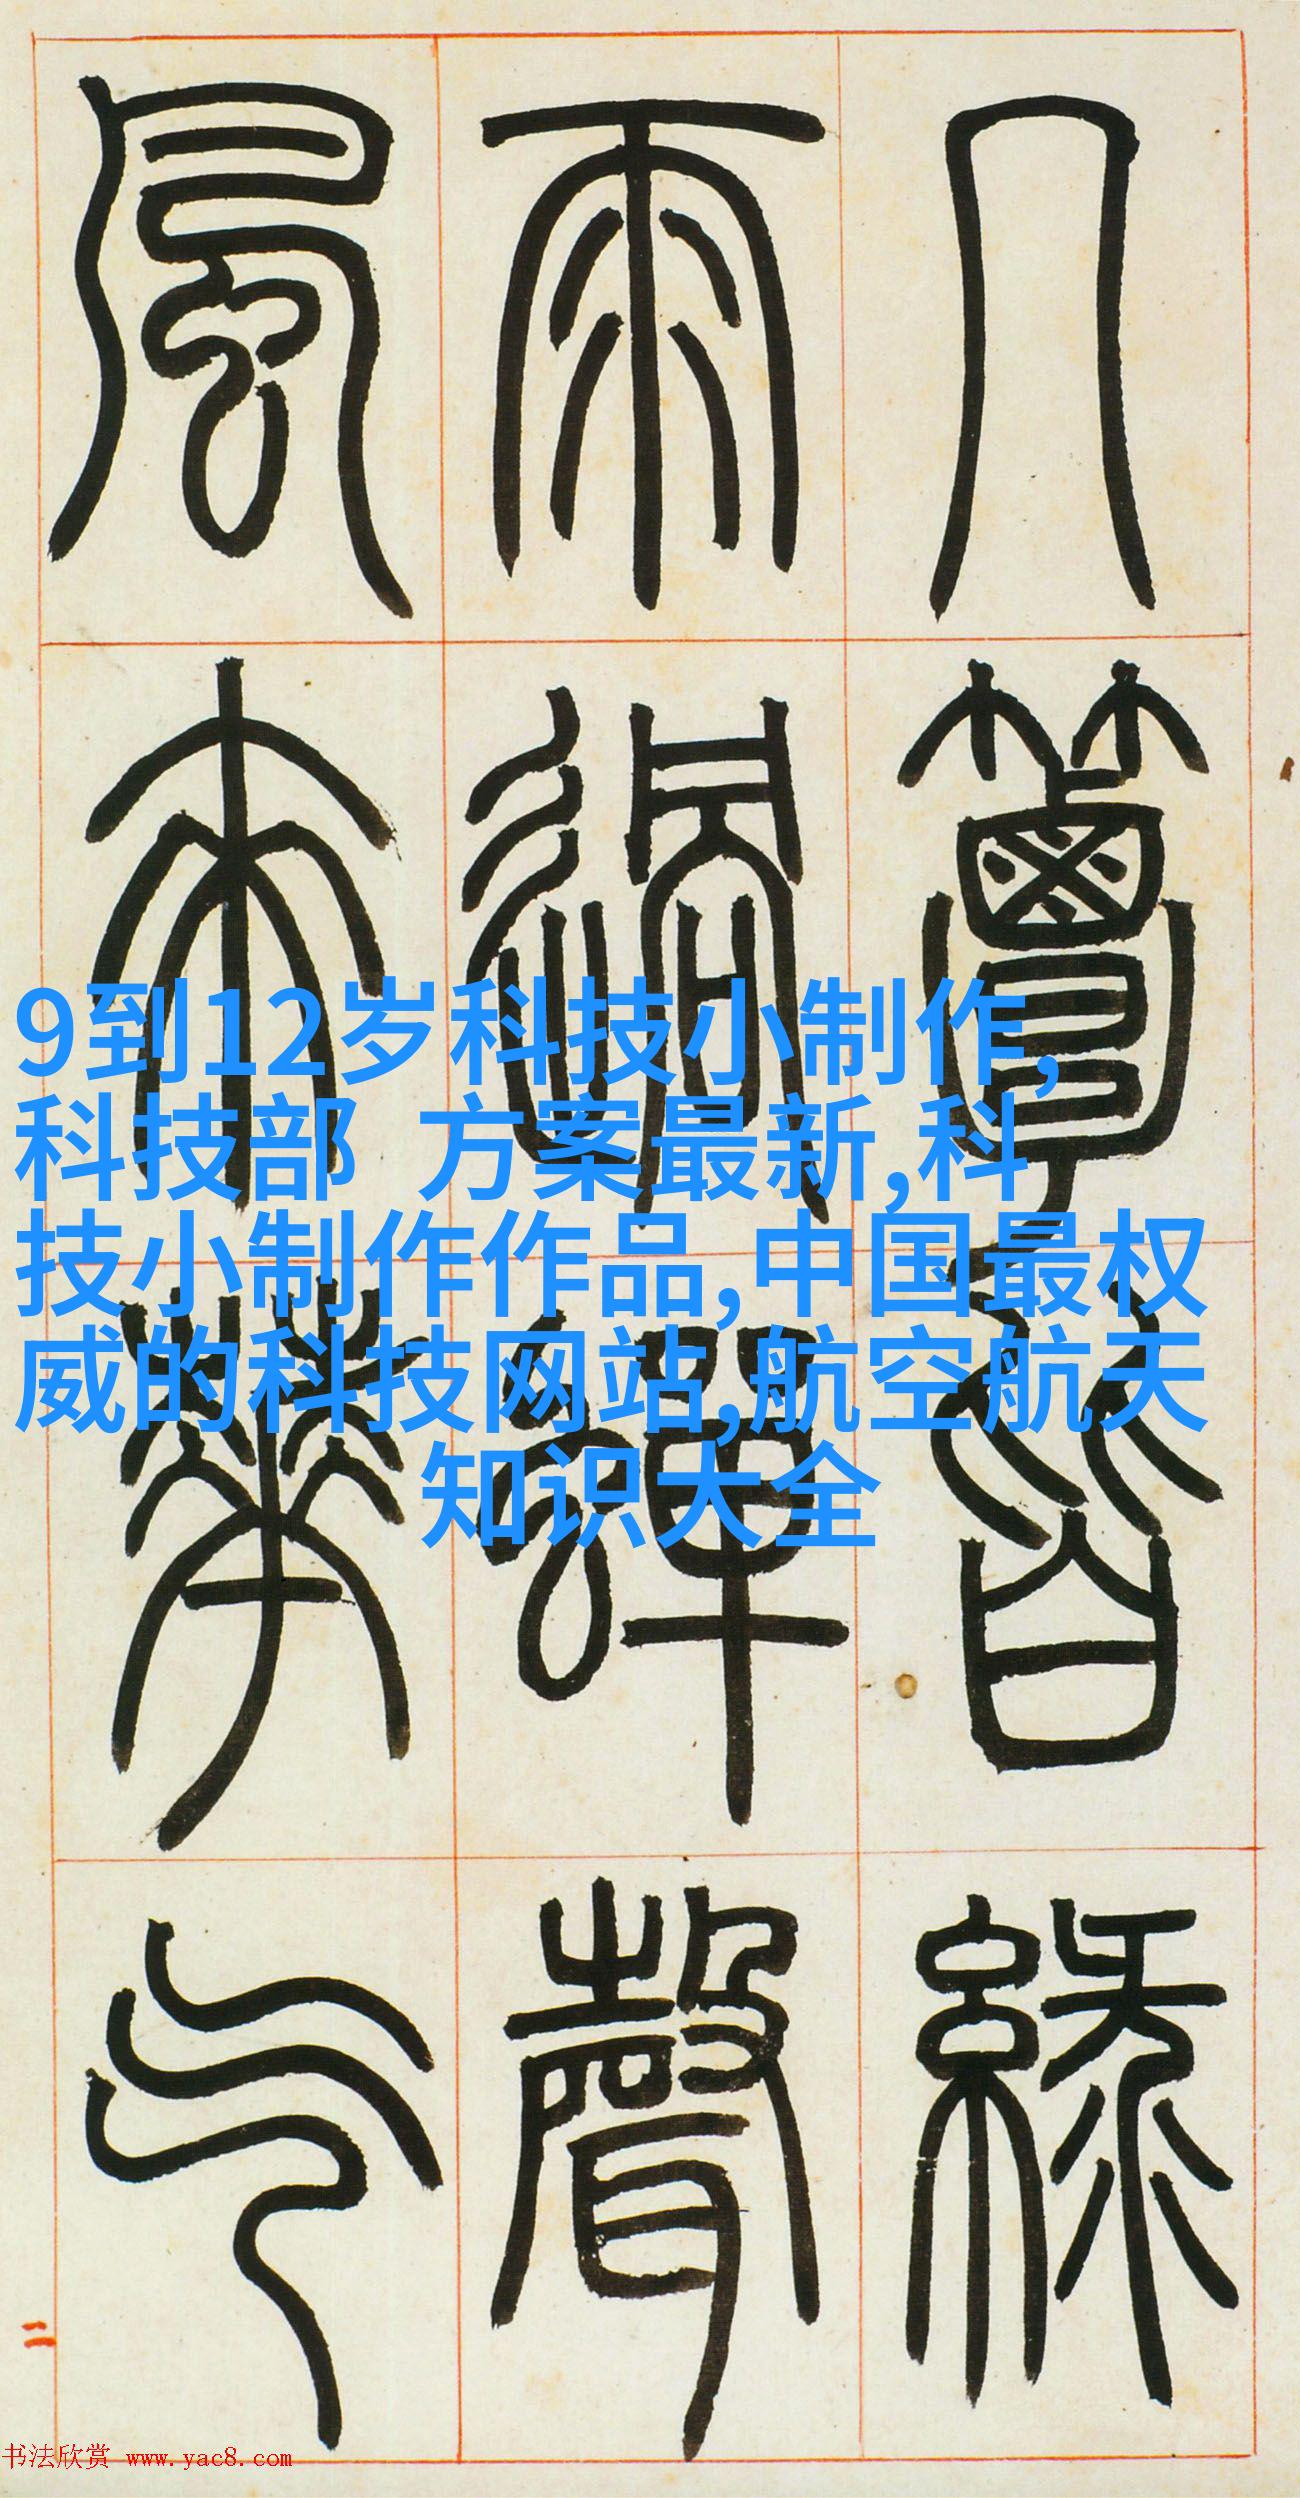 几簟皆綠
雨過蟬聲
風來華气
9到12岁科技小制作,
科技部 方案最新,科
技小制作作品,中国最权
威的科技网站,航空航天
知识大全
二
书法欣赏 www.yac8.com